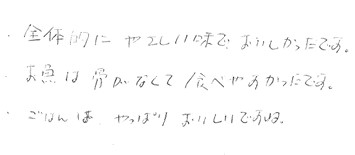 ・全体的に やさしい味で おいしかったです。
・お魚は 骨がなくて 食べやすかったです。
・ごはんは、やっぱり おいしいですね。